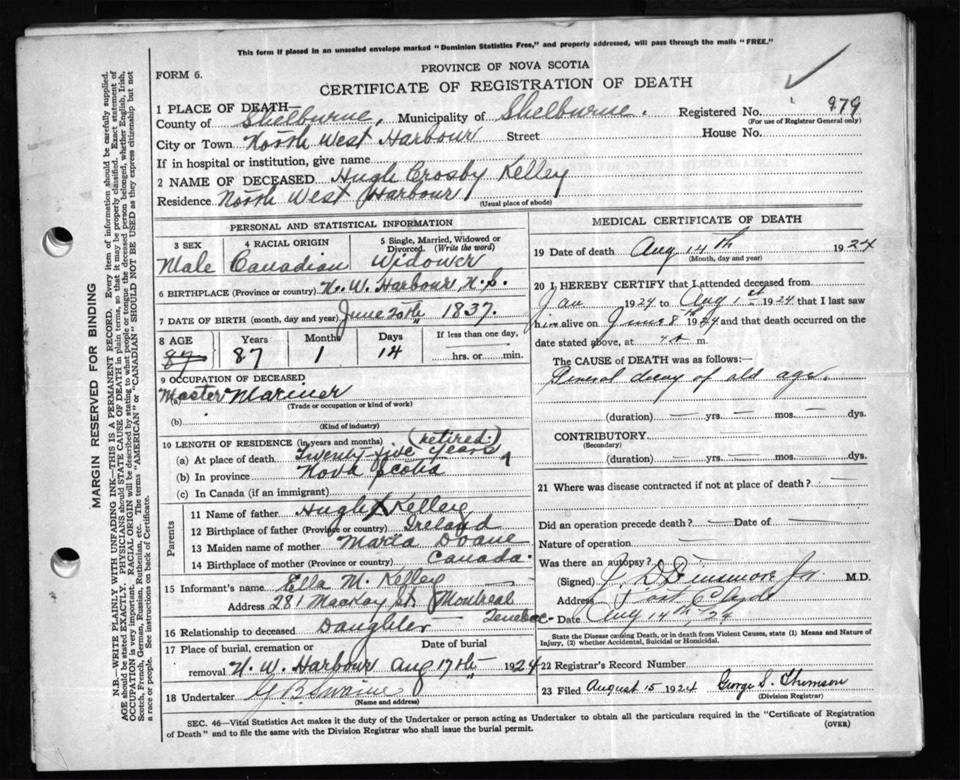 This form if placed in an unsealed envelope marked "Dominion Statistics Free," and properly addressed, will pass through the mails "FREE."
FORM 6.
PROVINCE OF NOVA SCOTIA
CERTIFICATE OF REGISTRATION OF DEATH
1 PLACE OF DEATH—
County of Shelburne, Municipality of Shelburne. Registered No. 979
(For use of Registrar General only)
City or Town North West Harbour Street House No.
If in hospital or institution, give name
2 NAME OF DECEASED Hugh Crosby Kelley
Residence North West Harbour
(Usual place of abode)
PERSONAL AND STATISTICAL INFORMATION
3 SEX 4 RACIAL ORIGIN 5 Single, Married, Widowed or Divorced. (Write the word)
Male Canadian Widower
6 BIRTHPLACE (Province or country) N. W. Harbour N.S.
7 DATE OF BIRTH (month, day and year) June 20th 1837.
8 AGE Years Months Days If less than one day,
87 87 1 14 hrs. or min.
9 OCCUPATION OF DECEASED
(a) Master Mariner
(Trade or occupation or kind of work)
(b)
(Kind of industry)
(retired.)
10 LENGTH OF RESIDENCE (in years and months)
(a) At place of death Twenty-five years
(b) In province Nova Scotia
(c) In Canada (if an immigrant)
Parents
11 Name of father Hugh Kelley
12 Birthplace of father (Province or country) Ireland
13 Maiden name of mother Maria Doane
14 Birthplace of mother (Province or country) Canada.
15 Informant's name Ella M. Kelley
Address 281 Mackay St. Montreal
Quebec
16 Relationship to deceased Daughter
17 Place of burial, cremation or removal Date of burial
N. W. Harbour Aug 17th 1924
18 Undertaker
(Name and address)
MEDICAL CERTIFICATE OF DEATH
19 Date of death Aug 14th 1924
(Month, day and year)
20 I HEREBY CERTIFY that I attended deceased from
Jan 1924 to Aug 1st 1924 that I last saw
him alive on June 8th 1924 and that death occurred on the
date stated above, at m.
The CAUSE OF DEATH was as follows:
decay of old age.
(duration) — yrs. — mos. — dys.
CONTRIBUTORY
(Secondary)
(duration) — yrs. — mos. — dys.
21 Where was disease contracted if not at place of death? —
Did an operation precede death? — Date of —
Nature of operation —
Was there an autopsy?
(Signed) Dinsmore Jr M.D.
Address Port Clyde
Date Aug 14th, 24
State the Disease causing Death, or in death from Violent Causes, state (1) Means and Nature of Injury, (2) whether Accidental, Suicidal or Homicidal.
22 Registrar's Record Number
23 Filed August 15 1924 George S. Thomson
(Division Registrar)
SEC. 46—Vital Statistics Act makes it the duty of the Undertaker or person acting as Undertaker to obtain all the particulars required in the "Certificate of Registration
of Death" and to file the same with the Division Registrar who shall issue the burial permit. (OVER)
MARGIN RESERVED FOR BINDING
N.B.—WRITE PLAINLY WITH UNFADING INK—THIS IS A PERMANENT RECORD. Every item of information should be carefully supplied.
AGE should be stated EXACTLY. PHYSICIANS should STATE CAUSE OF DEATH in plain terms, so that it may be properly classified. Exact statement of
OCCUPATION is very important. RACIAL ORIGIN will be described by stating to what people or tongue the deceased person belonged, whether English, Irish,
Scotch, French, German, Russian, Ruthenian, etc. The terms "AMERICAN" or "CANADIAN" SHOULD NOT BE USED as they express citizenship but not
a race or people. See instructions on back of Certificate.